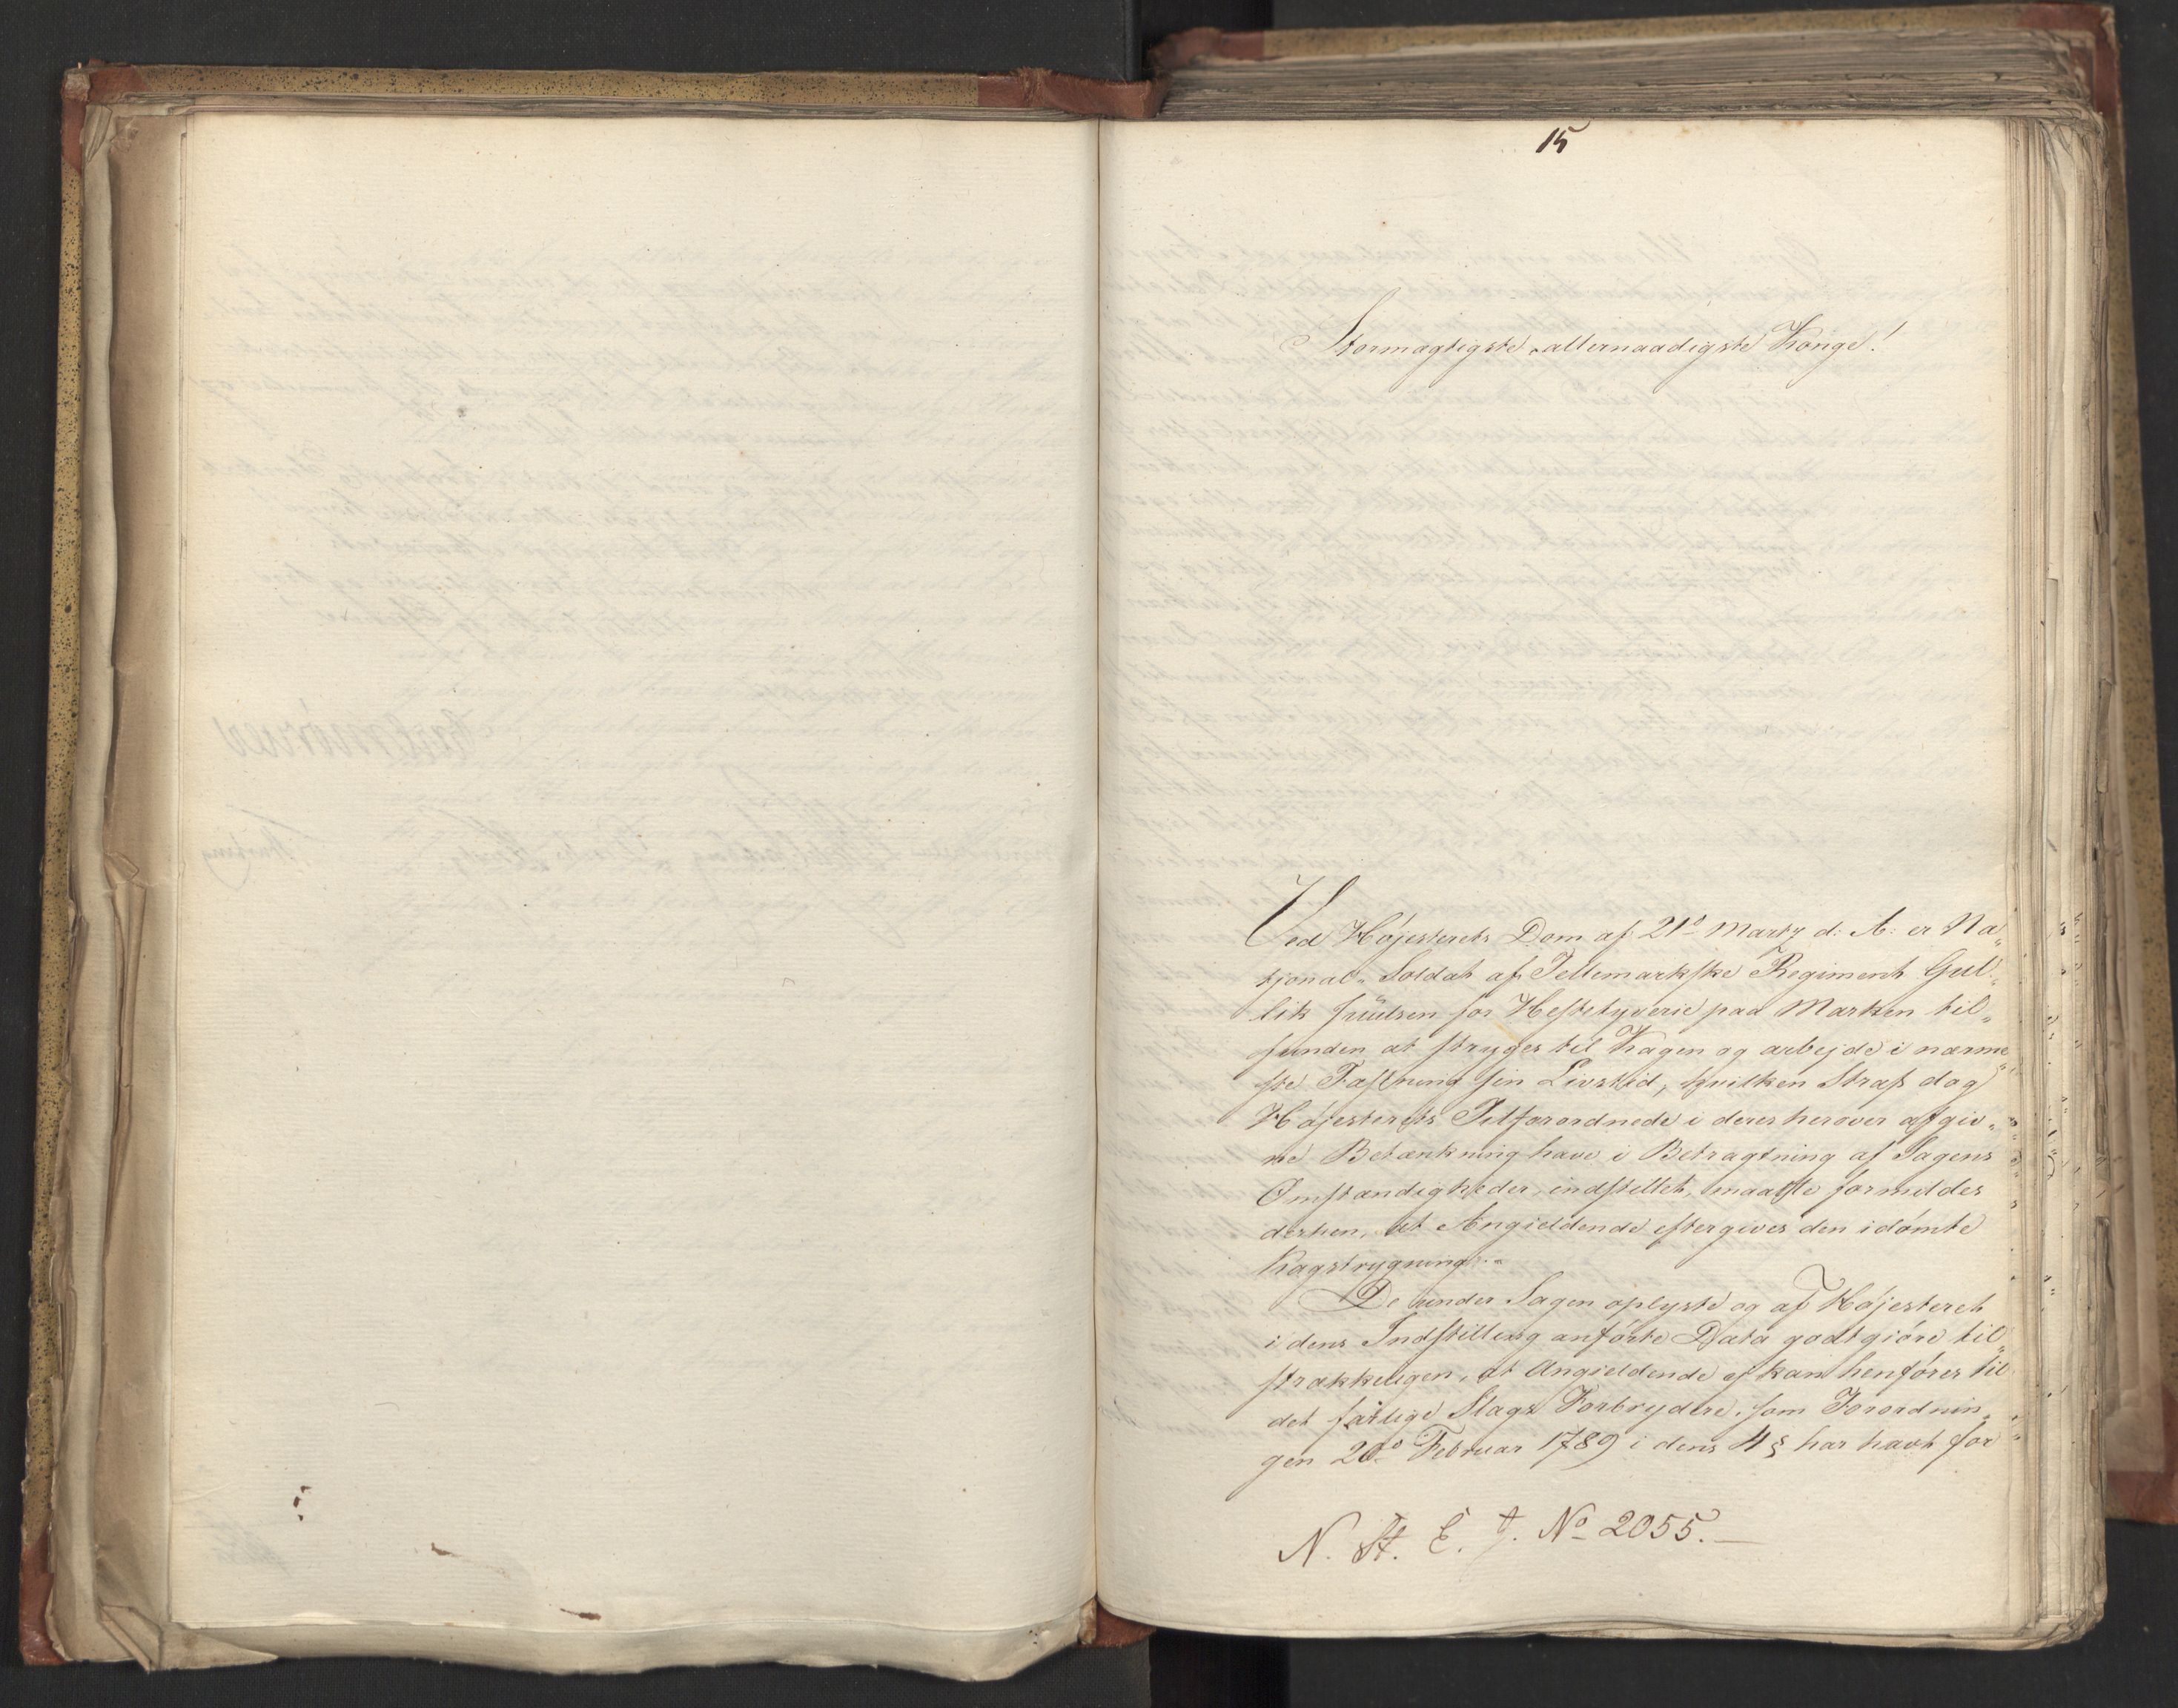 15
Stormægtigste, allernaadigste Konge!
Ved Höjesterets Dom af 21de Martz d: A: er Na„
tjonal„ Soldat af Tellemarkske Regiment Gul„
lik Juulsen for Hestetyverie paa Marken til„
funden at stryges til Kagen og arbejde i nærme„
ste Fæstning sin Livstid, hvilken Straf dog
Höjesterets Tilforordnede i deres herover afgiv„
ne Betænkning have i Betragtning af Sagens
Omstændigheder, indstillet, maatte formildes
derhen, at Angieldende eftergives den idömte
Kagstrygning.„
De under Sagen oplyste og af Höjesteret
i dens Indstilling anförte Data godtgiöre til„
strækkeligen, at Angieldende ej kan henföres til
det farlige Slags Forbrydere, som Forordnin„
gen 20de Februar 1789 i dens 4 § har havt for
N. St. E. J. No 2055.—